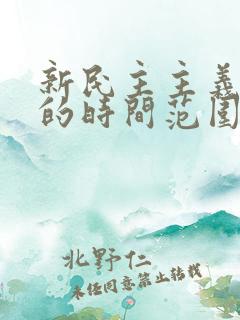 新民主主義
的時間范圍
北野仁
未任同意禁止转载